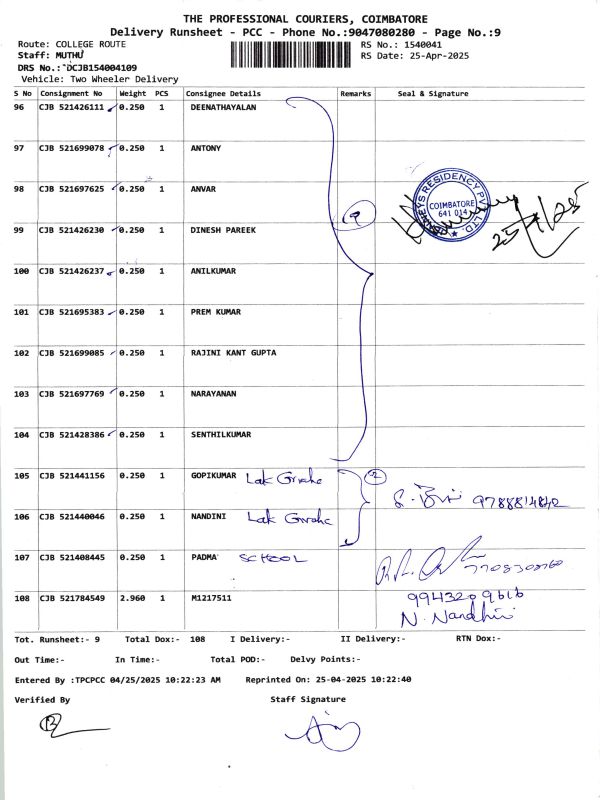 THE PROFESSIONAL COURIERS, COIMBATORE
Delivery Runsheet - PCC - Phone No.:9047080280 - Page No.:9
Route: COLLEGE ROUTE RS No.: 1540041
Staff: MUTHU RS Date: 25-Apr-2025
DRS No.: DCJB154004109
Vehicle: Two Wheeler Delivery
S No Consignment No Weight PCS Consignee Details Remarks Seal & Signature
96 CJB 521426111 0.250 1 DEENATHAYALAN
97 CJB 521699078 0.250 1 ANTONY
98 CJB 521697625 0.250 1 ANVAR
RESIDENCY PVT LTD.
COIMBATORE
641 014
9
25/4/25
99 CJB 521426230 0.250 1 DINESH PAREEK
100 CJB 521426237 0.250 1 ANILKUMAR
101 CJB 521695383 0.250 1 PREM KUMAR
102 CJB 521699085 0.250 1 RAJINI KANT GUPTA
103 CJB 521697769 0.250 1 NARAYANAN
104 CJB 521428386 0.250 1 SENTHILKUMAR
105 CJB 521441156 0.250 1 GOPIKUMAR Lak 2
106 CJB 521440046 0.250 1 NANDINI Lak
107 CJB 521408445 0.250 1 PADMA SCHOOL
108 CJB 521784549 2.960 1 M1217511 9943209616
N. Nandhini
Tot. Runsheet:- 9 Total Dox:- 108 I Delivery:- II Delivery:- RTN Dox:-
Out Time:- In Time:- Total POD:- Delvy Points:-
Entered By :TPCPCC 04/25/2025 10:22:23 AM Reprinted On: 25-04-2025 10:22:40
Verified By Staff Signature